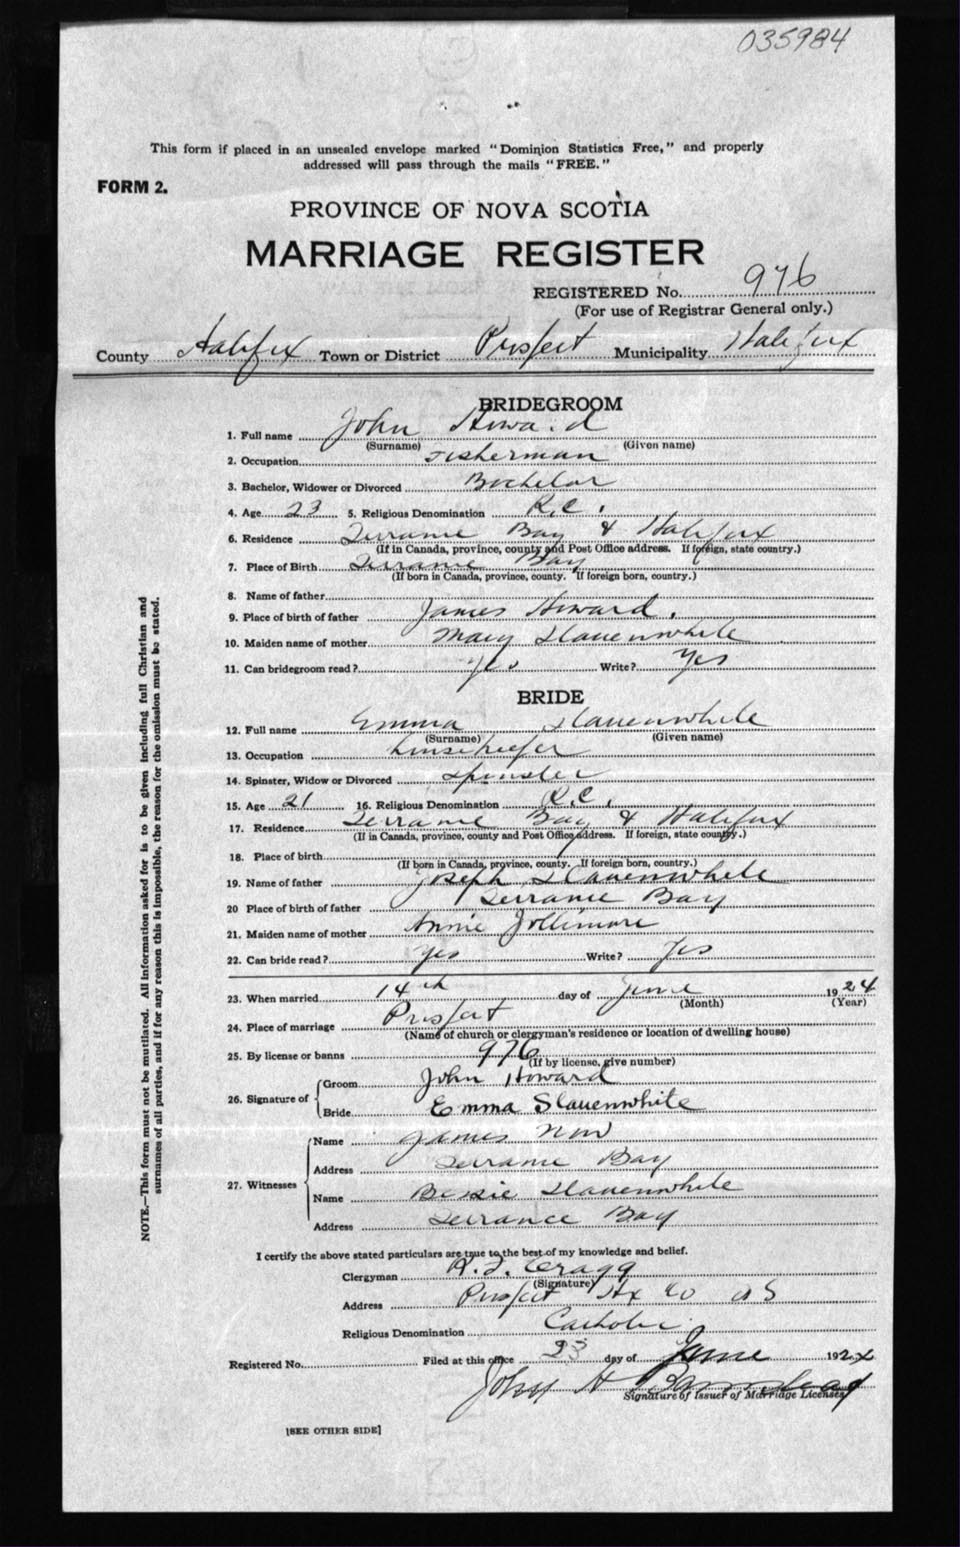 035984
This form if placed in an unsealed envelope marked "Dominion Statistics Free," and properly
addressed will pass through the mails "FREE."
FORM 2.
PROVINCE OF NOVA SCOTIA
MARRIAGE REGISTER
REGISTERED No. 976
(For use of Registrar General only.)
County Halifax Town or District Prospect Municipality Halifax
BRIDEGROOM
1. Full name John Howard
(Surname) (Given name)
2. Occupation Fisherman
3. Bachelor, Widower or Divorced Bachelor
4. Age 23 5. Religious Denomination R.C.
6. Residence Terrance Bay & Halifax
(If in Canada, province, county and Post Office address. If foreign, state country.)
7. Place of Birth Terrance Bay
(If born in Canada, province, county. If foreign born, country.)
8. Name of father
9. Place of birth of father James Howard.
10. Maiden name of mother Mary Slauenwhite
11. Can bridegroom read? Yes Write? Yes
BRIDE
12. Full name Emma Slauenwhite
(Surname) (Given name)
13. Occupation housekeeper
14. Spinster, Widow or Divorced Spinster
15. Age 21 16. Religious Denomination R.C.
17. Residence Terrance Bay & Halifax
(If in Canada, province, county and Post Office address. If foreign, state country.)
18. Place of birth
(If born in Canada, province, county. If foreign born, country.)
19. Name of father Joseph Slauenwhite
20 Place of birth of father Terrance Bay
21. Maiden name of mother Annie Jollimore
22. Can bride read? Yes Write? Yes
23. When married 14th day of June 1924
(Month) (Year)
24. Place of marriage Prospect
(Name of church or clergyman's residence or location of dwelling house)
25. By license or banns 976
(If by license, give number)
26. Signature of Groom John Howard
Bride Emma Slauenwhite
27. Witnesses
Name James
Address Terrance Bay
Name Bessie Slauenwhite
Address Terrance Bay
I certify the above stated particulars are true to the best of my knowledge and belief.
Clergyman Cragg
(Signature)
Address Prospect Hx Co NS
Religious Denomination Catholic
Registered No. Filed at this office 23 day of June 1924
John H
Signature of Issuer of Marriage Licenses
[SEE OTHER SIDE]
NOTE.—This form must not be mutilated. All information asked for is to be given including full Christian and
surnames of all parties, and if for any reason this is impossible, the reason for the omission must be stated.